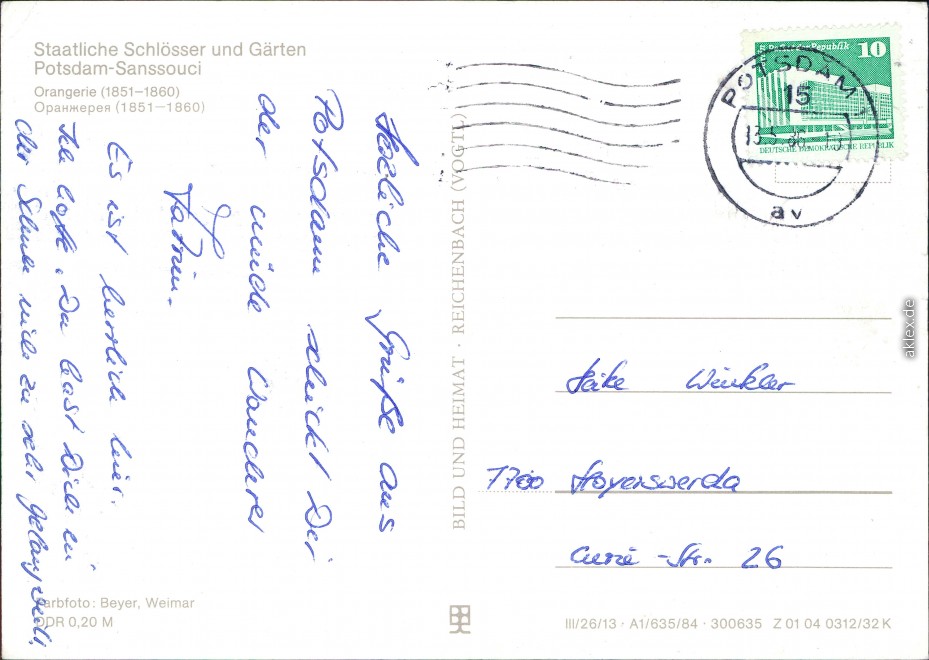 Staatliche Schlösser und Gärten
Potsdam-Sanssouci
Orangerie (1851—1860)
Оранжерея (1851—1860)
Herzliche Grüße aus
Potsdam schickt Dir
der müde Wanderer
Katrin.
Es ist herrlich hier.
Ich hoffe, Du hast Dich in
der Schule nicht zu sehr gelangweilt.
Farbfoto: Beyer, Weimar
DDR 0,20 M
BILD UND HEIMAT · REICHENBACH (VOGTL)
10
DEUTSCHE DEMOKRATISCHE REPUBLIK
POTSDAM 1
15
13.5.86
av
Heike Winkler
7700 Hoyerswerda
Curie-Str. 26
III/26/13 · A1/635/84 · 300635 Z 01 04 0312/32 K
aklex.de